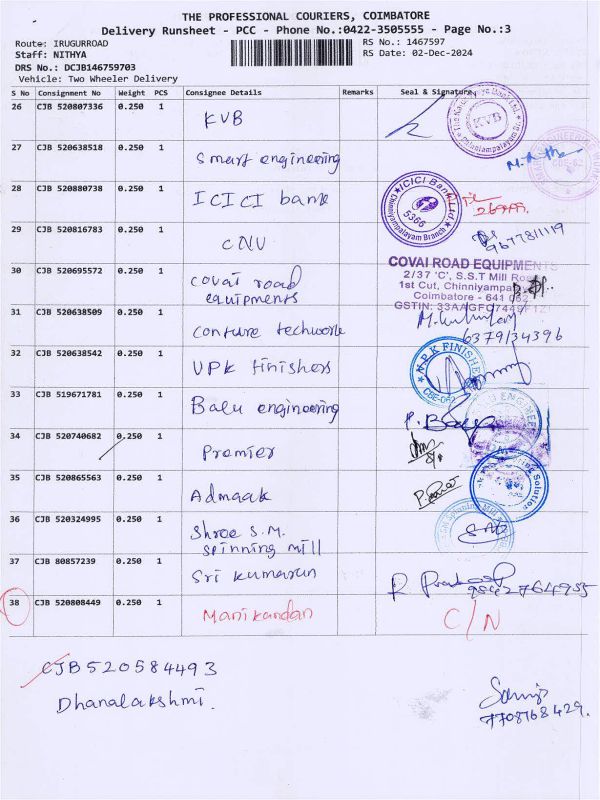 THE PROFESSIONAL COURIERS, COIMBATORE
Delivery Runsheet - PCC - Phone No.:0422-3505555 - Page No.:3
Route: IRUGURROAD
RS No.: 1467597
Staff: NITHYA
RS Date: 02-Dec-2024
DRS No.: DCJB146759703
Vehicle: Two Wheeler Delivery
S No Consignment No Weight PCS Consignee Details Remarks Seal & Signature
26 CJB 520807336 0.250 1 KVB
KVB
27 CJB 520638518 0.250 1 Smart engineering
28 CJB 520880738 0.250 1 ICICI bank
ICICI Bank Ltd
5366
Chinniyampalayam Branch
29 CJB 520816783 0.250 1 CNV
9677811119
30 CJB 520695572 0.250 1 Covai road
equipments
COVAI ROAD EQUIPMENTS
2/37 'C', S.S.T Mill Road
1st Cut, Chinniyampa
Coimbatore - 641 062
GSTIN: 33AAGFC7449F1Z
31 CJB 520638509 0.250 1 Conture techworle
6379134396
32 CJB 520638542 0.250 1 VPK finishers
N.P.K FINISHE
CBE-062
33 CJB 519671781 0.250 1 Balu engineering
34 CJB 520740682 0.250 1 Premier
35 CJB 520865563 0.250 1 Admaak
Solution
36 CJB 520324995 0.250 1 Shree S.M.
Spinning mill
37 CJB 80857239 0.250 1 Sri kumaran
38 CJB 520808449 0.250 1 Manikandan C/N
CJB520584493
Dhanalakshmi.
7708768429.